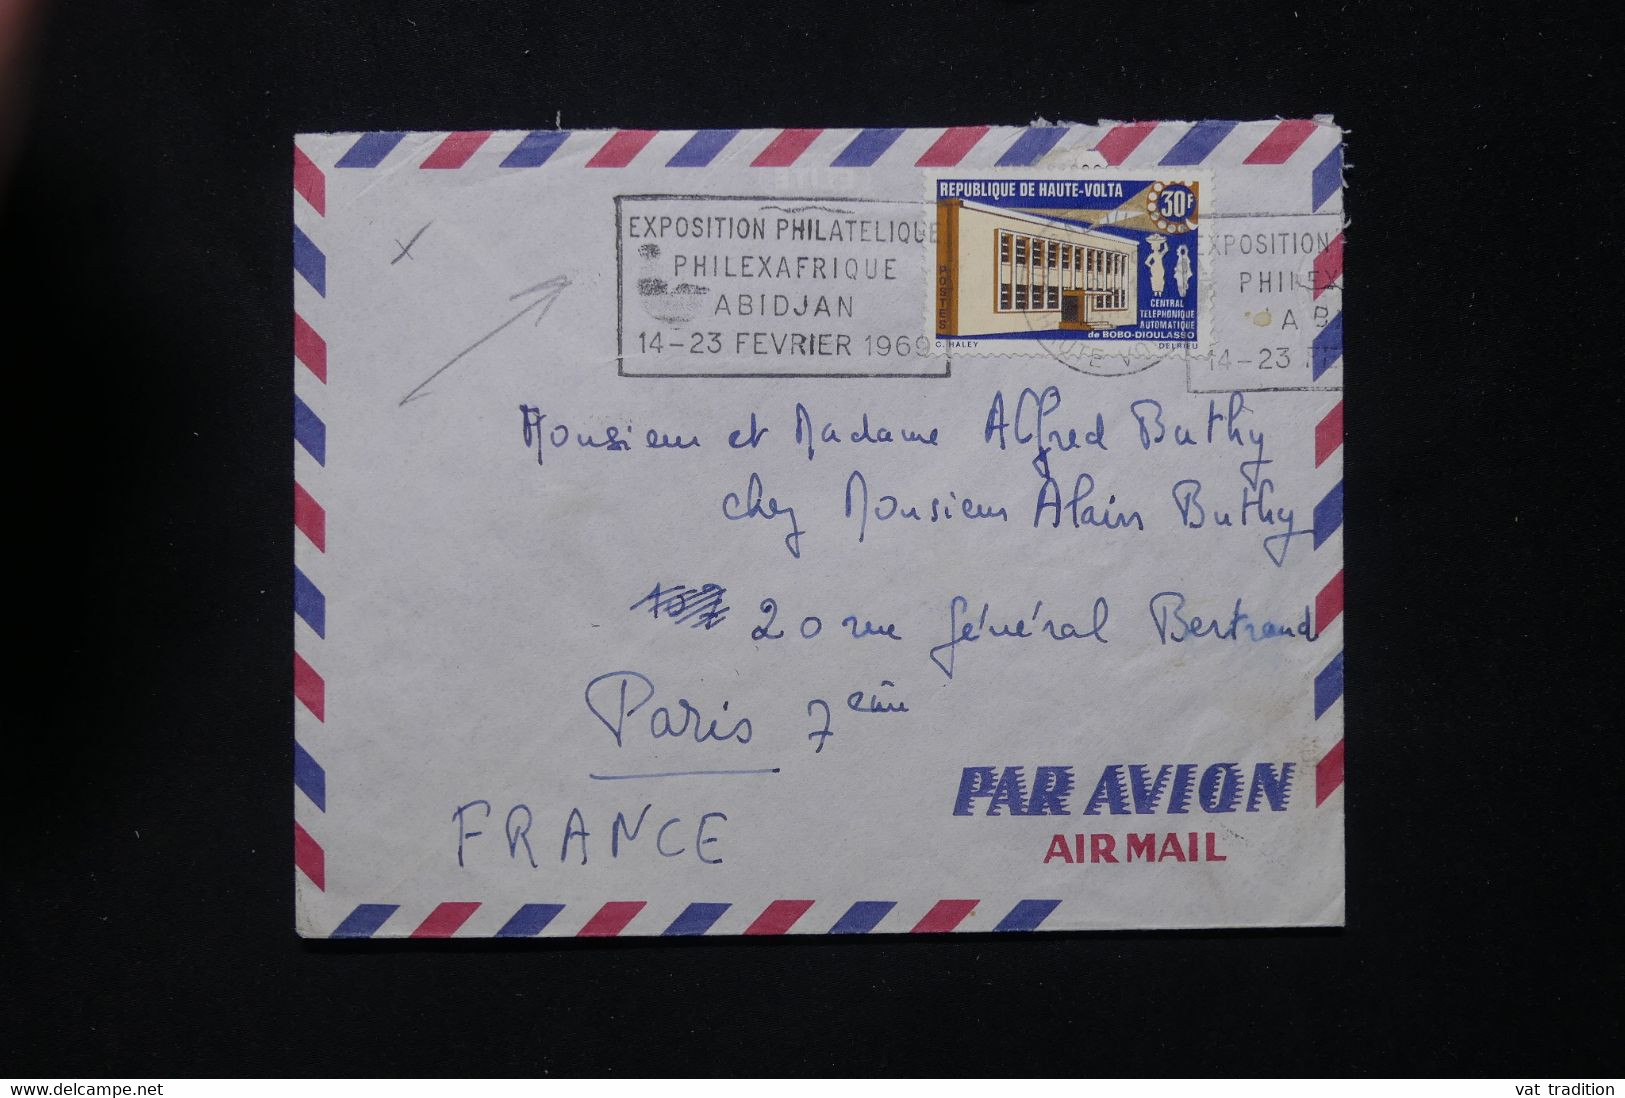 EXPOSITION PHILATELIQUE
PHILEXAFRIQUE
ABIDJAN
14-23 FEVRIER 1969
REPUBLIQUE DE HAUTE-VOLTA
30F
POSTES
CENTRAL
TELEPHONIQUE
AUTOMATIQUE
de BOBO-DIOULASSO
C. HALEY DELRIEU
EXPOSITION
PHILEX
AB
14-23
Monsieur et Madame Alfred Buthy
chez Monsieur Alain Buthy
20 rue Général Bertrand
Paris 7eme
FRANCE
PAR AVION
AIR MAIL
delcampe.net
vat tradition